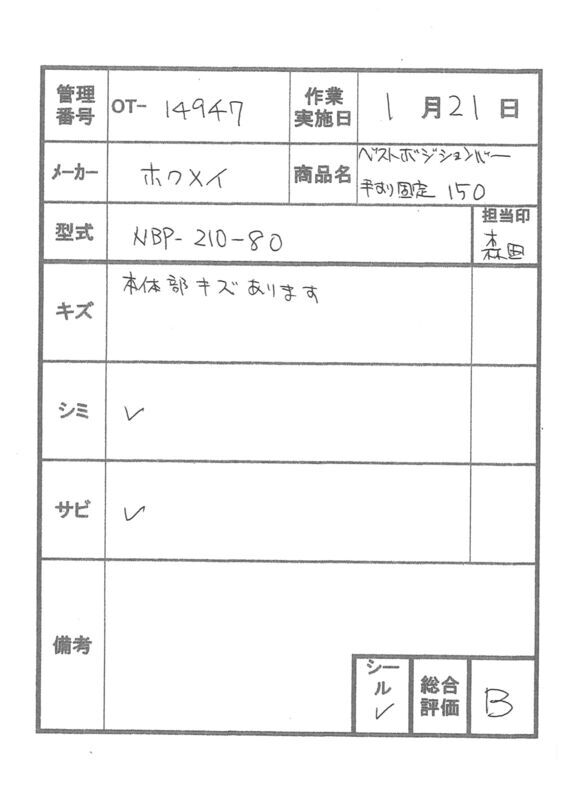 管理番号 OT- 14947 作業実施日 1月21日
メーカー ホクメイ 商品名 ベストポジションバー
手すり固定 150
型式 NBP-210-80 担当印
森田
キズ 本体部キズあります
シミ ✓
サビ ✓
備考
シール ✓ 総合評価 B